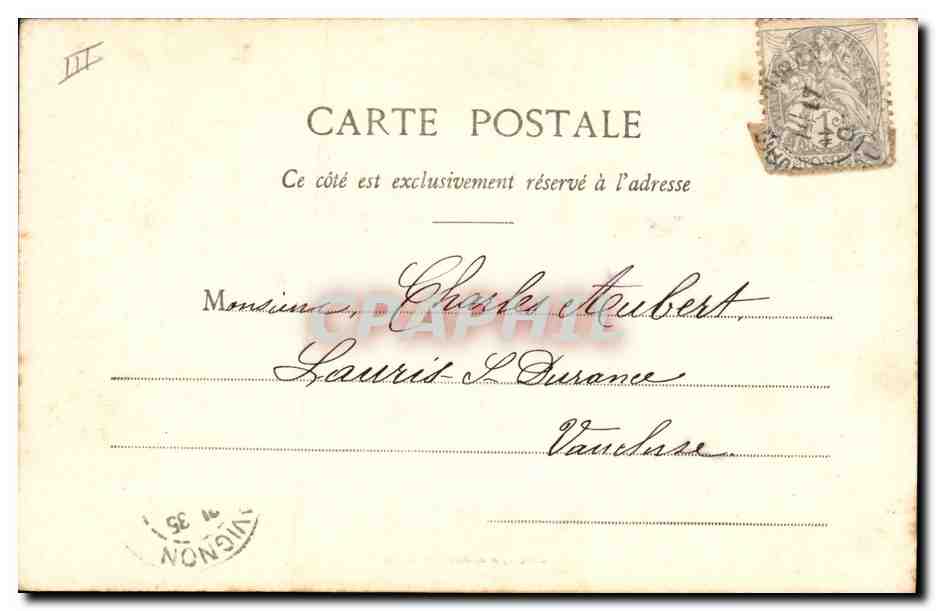 III
CARTE POSTALE
Ce côté est exclusivement réservé à l'adresse
Monsieur Charles Aubert.
CPAPHIL
Lauris S Durance
Vaucluse.
VIGNON
35
17
1c